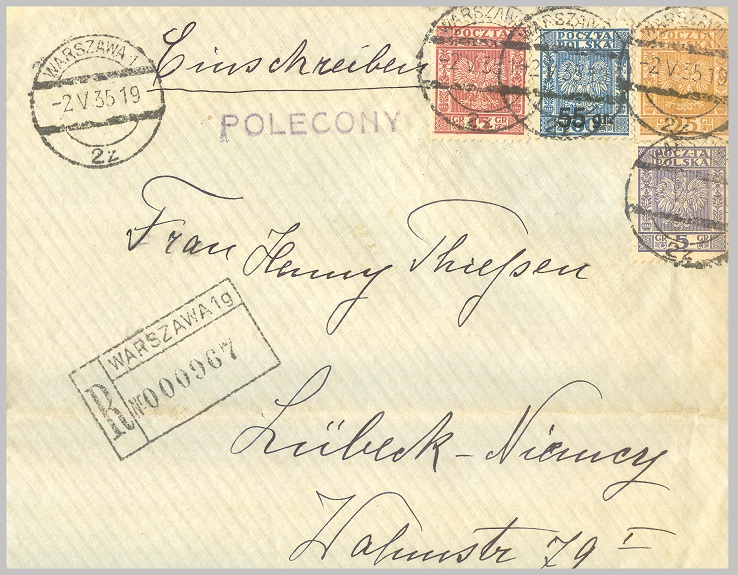 Einschreiben
POLECONY
WARSZAWA 1
-2 V 35 19
2z
POCZTA
POLSKA
GR GR
POCZTA
POLSKA
55 gr.
POCZTA
POLSKA
GR 25 GR
POCZTA
POLSKA
GR 5 GR
Frau Henny Thießen
WARSZAWA 1g
R № 000967
Lübeck-Niemcy
Walmstr 79 I